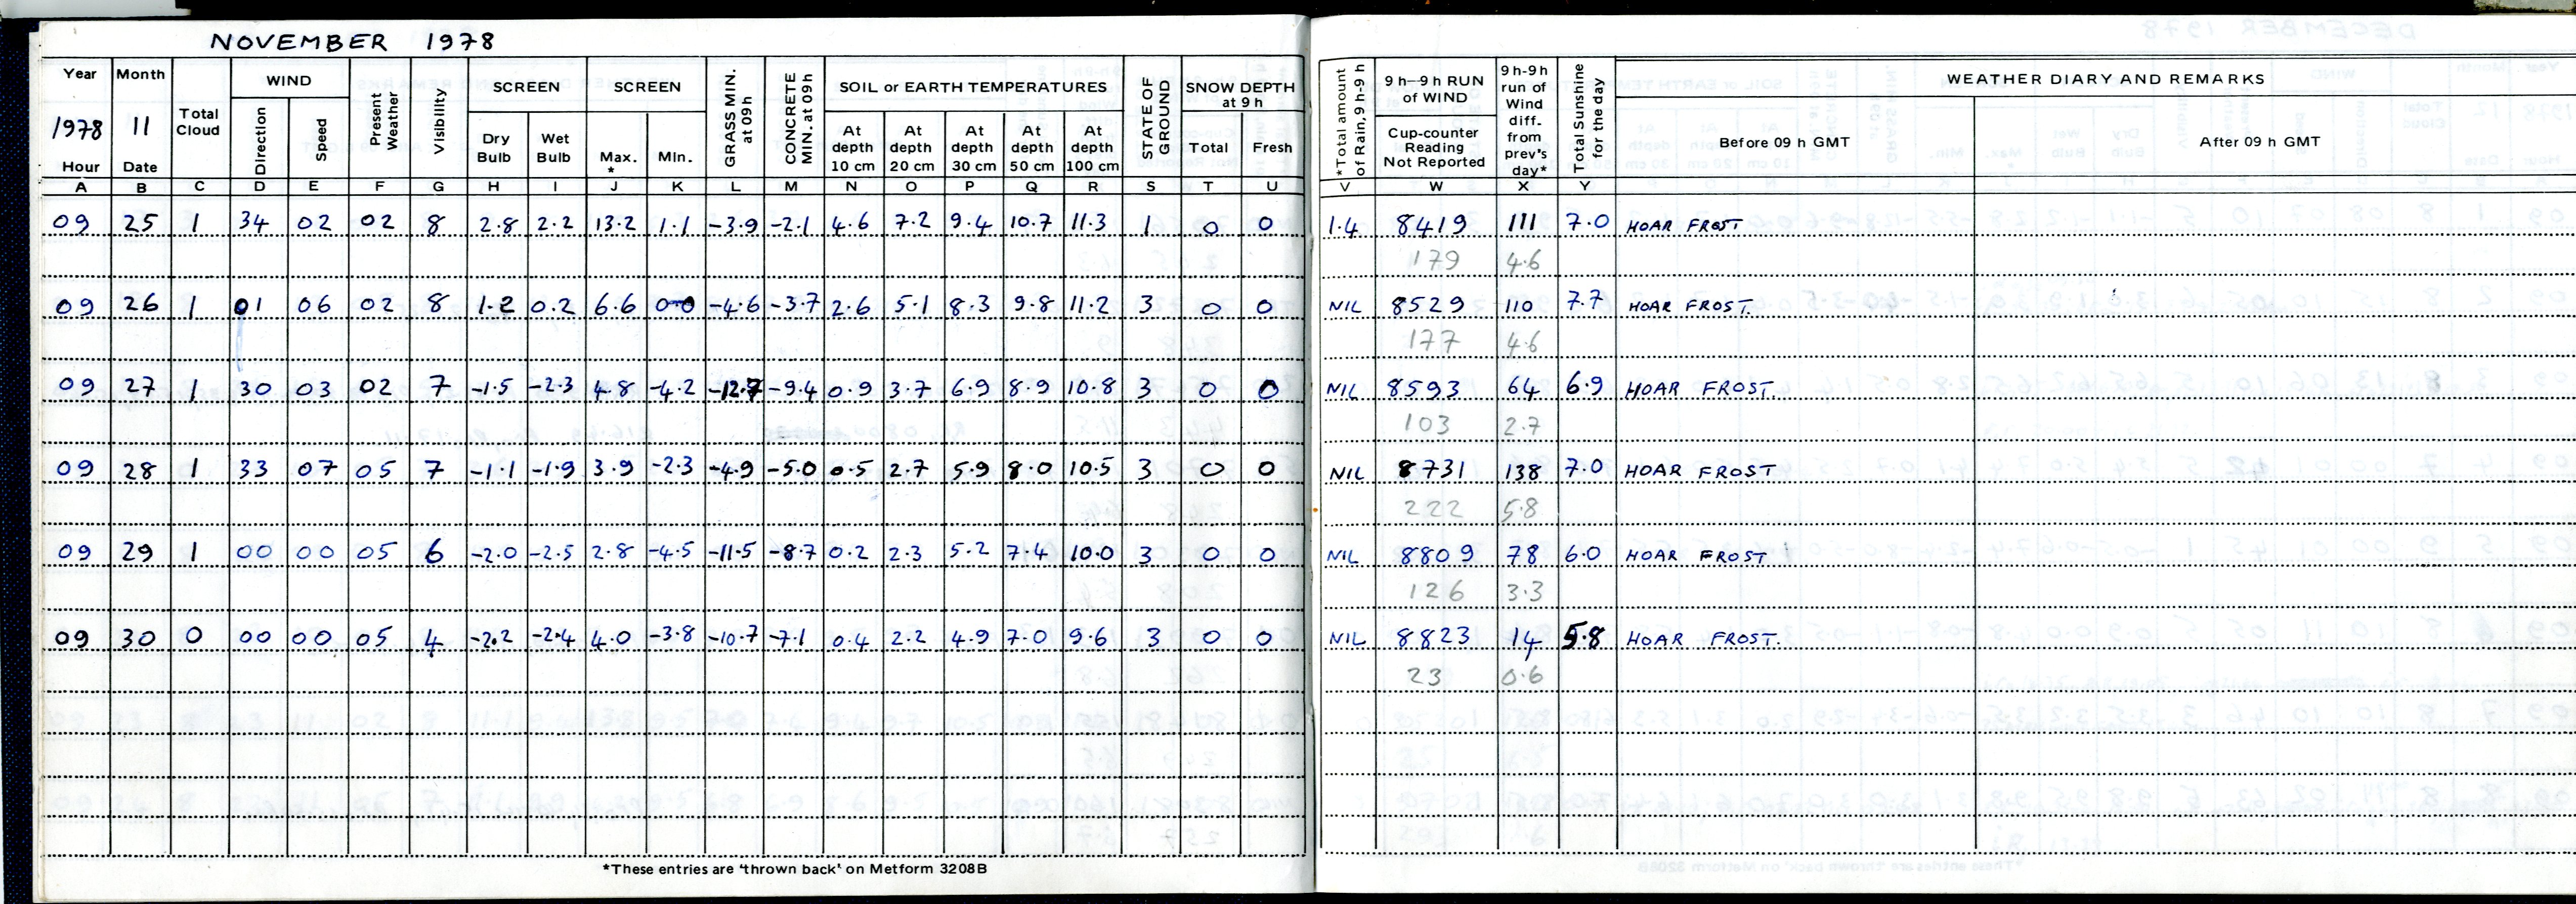 NOVEMBER 1978
Year Month Total Cloud WIND Present Weather Visibility SCREEN SCREEN GRASS MIN. at 09 h CONCRETE MIN. at 09 h SOIL or EARTH TEMPERATURES STATE OF GROUND SNOW DEPTH at 9 h *Total amount of Rain, 9 h-9 h 9 h—9 h RUN of WIND 9 h-9 h run of Wind diff. from prev's day* Total Sunshine for the day WEATHER DIARY AND REMARKS
1978 11 Direction Speed Dry Bulb Wet Bulb Max. * Min. At depth 10 cm At depth 20 cm At depth 30 cm At depth 50 cm At depth 100 cm Total Fresh Cup-counter Reading Not Reported Before 09 h GMT After 09 h GMT
Hour Date
A B C D E F G H I J K L M N O P Q R S T U V W X Y
09 25 1 34 02 02 8 2.8 2.2 13.2 1.1 -3.9 -2.1 4.6 7.2 9.4 10.7 11.3 1 0 0 1.4 8419 111 7.0 HOAR FROST
179 4.6
09 26 1 01 06 02 8 1.2 0.2 6.6 0.0 -4.6 -3.7 2.6 5.1 8.3 9.8 11.2 3 0 0 NIL 8529 110 7.7 HOAR FROST.
177 4.6
09 27 1 30 03 02 7 -1.5 -2.3 4.8 -4.2 -12.7 -9.4 0.9 3.7 6.9 8.9 10.8 3 0 0 NIL 8593 64 6.9 HOAR FROST.
103 2.7
09 28 1 33 07 05 7 -1.1 -1.9 3.9 -2.3 -4.9 -5.0 0.5 2.7 5.9 8.0 10.5 3 0 0 NIL 8731 138 7.0 HOAR FROST
222 5.8
09 29 1 00 00 05 6 -2.0 -2.5 2.8 -4.5 -11.5 -8.7 0.2 2.3 5.2 7.4 10.0 3 0 0 NIL 8809 78 6.0 HOAR FROST
126 3.3
09 30 0 00 00 05 4 -2.2 -2.4 4.0 -3.8 -10.7 -7.1 0.4 2.2 4.9 7.0 9.6 3 0 0 NIL 8823 14 5.8 HOAR FROST.
23 0.6
*These entries are 'thrown back' on Metform 3208B